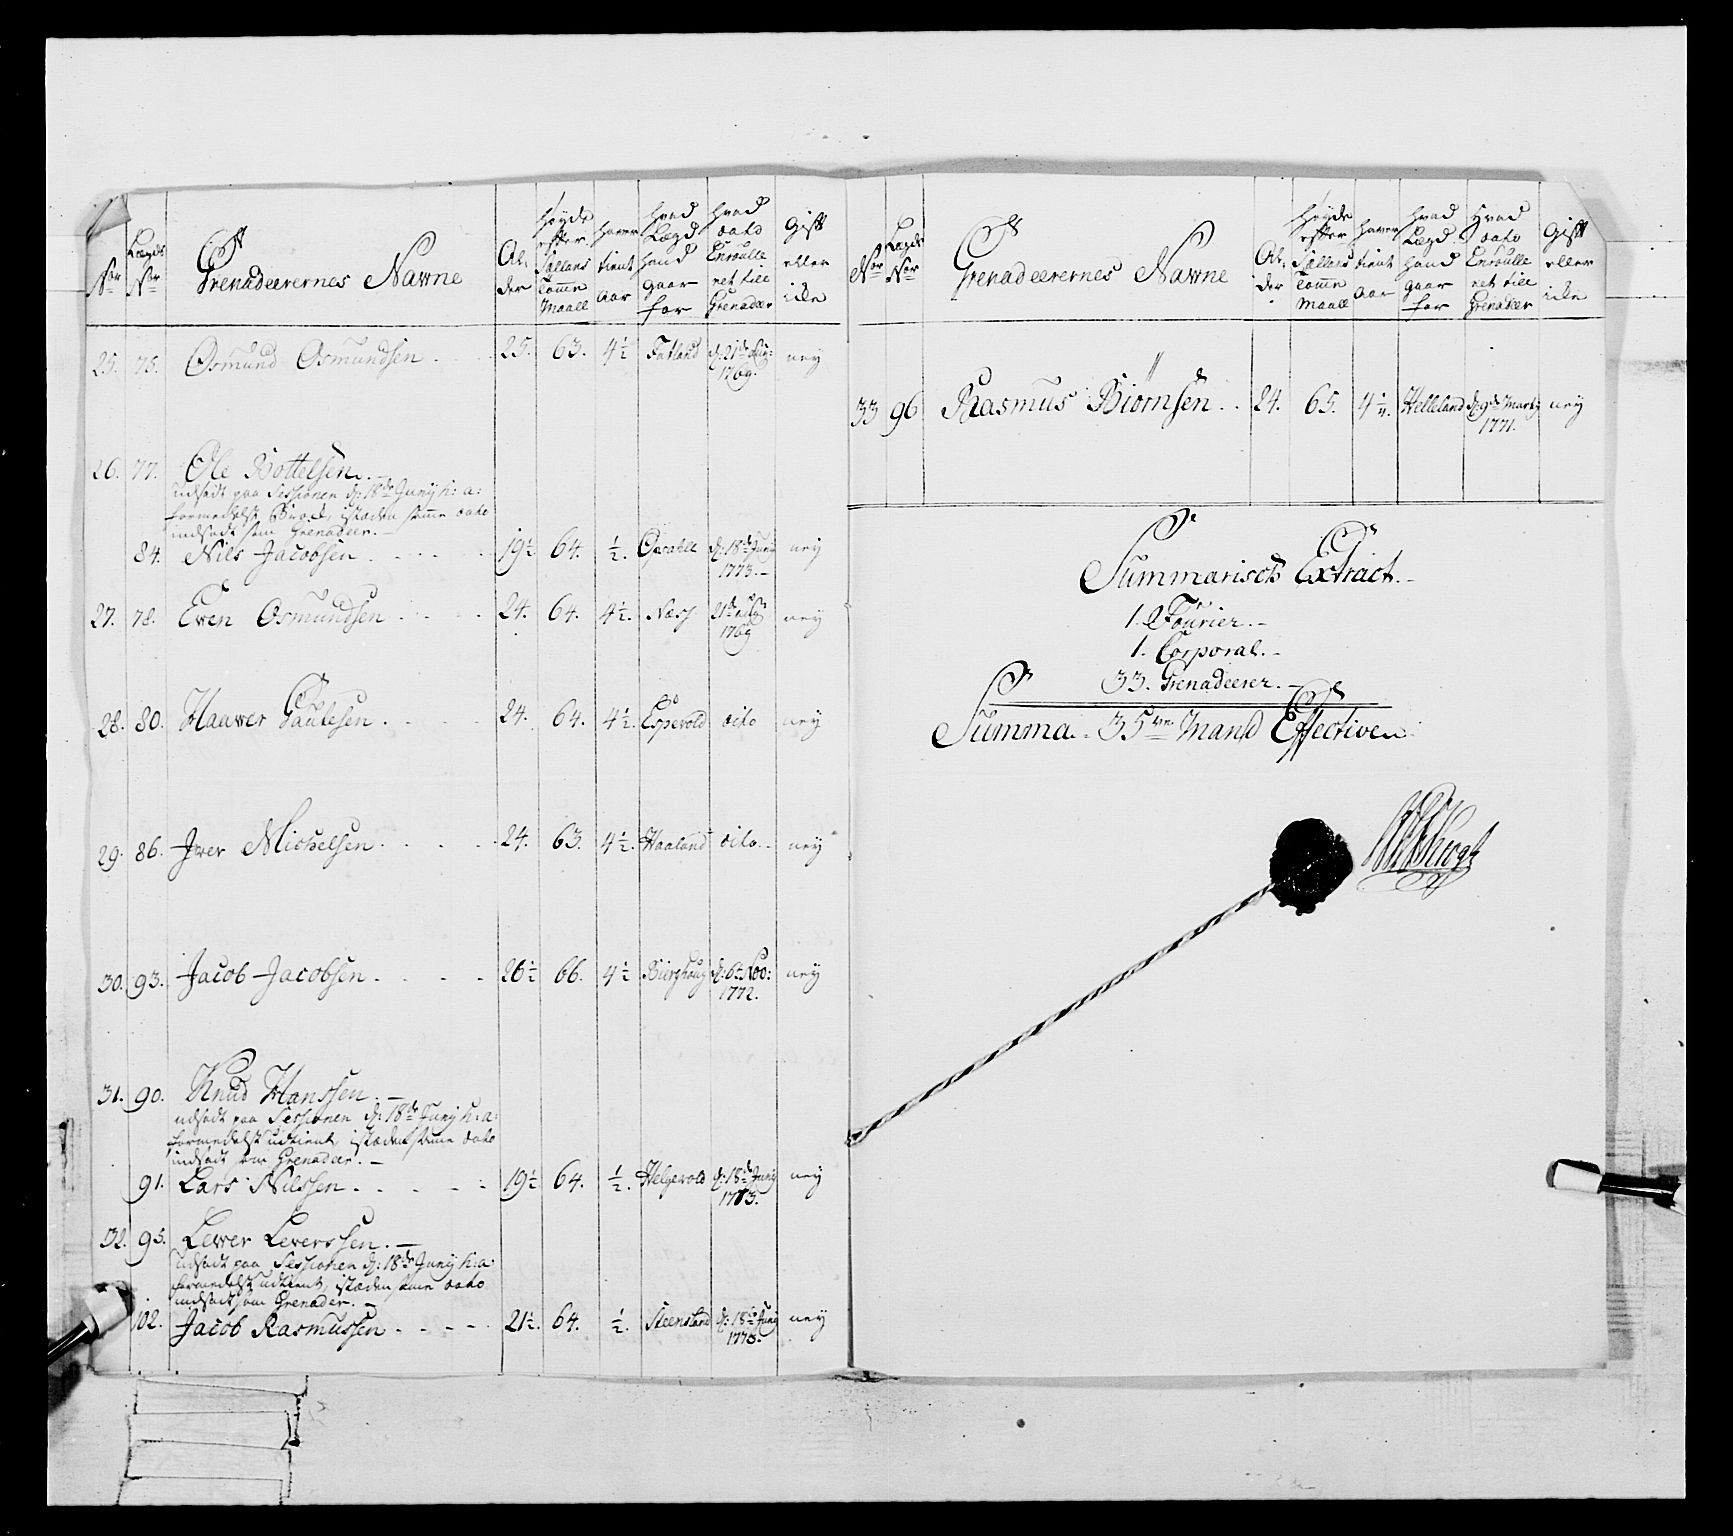 Nor Lægds Nor Grenadeerernes Nawne Al-der Høyde efter Sællans Tomme Maall hawer tient Aar hvad Lægd hand gaar for hvad dato Enroulleret till Grenadeer Gift eller icke
25. 75. Osmund Osmundsen 25. 63. 4½ Fatland d: 21de Aug: 1769. ney
26. 77. Ole Bottelsen.
udsadt paa Sessionen d: 18de Junij h: a:
formedelst Brock, istæden samme dato
indsadt som Grenadeer.
84. Nils Jacobsen 19½ 64. ½. Opsahll d: 18de Junij 1773. ney
27. 78. Ewen Osmundsen 24. 64. 4½. Næss 21de Aug 1769 ney
28. 80. Haawer Gautesen 24. 64. 4½. Espevold dito ney
29. 86. Jver Michelsen 24. 63. 4½. Haaland dito ney
30. 93. Jacob Jacobsen 26½ 66. 4½ Biirghoug d: 6te Nov: 1772. ney
31. 90. Knud Hanssen.
udsadt paa Sessionen d: 18de Junij h: a:
formedelst udtient, istæden samme dato
indsadt som Grenadeer.
91. Lars Nilssen 19½ 64. ½. Helgevold d: 18de Junij 1773. ney
32. 95. Lewer Leverssen.
udsadt paa Sessionen d: 18de Junij h: a
formedelst udtient, istæden samme dato
indsadt som Grenader.
102. Jacob Rasmussen 21½. 64. ½. Steensland d: 18de Junij 1773. ney
Nor Lægds Nor Grenadeerernes Nawne Al-der Høyde efter Sællans Tomme Maall hawer tient Aar hvad Lægd hand gaar for Hvad dato Enroulleret till Grenadeer Gift eller icke
33 96 Rasmus Biörnsen 24. 65. 4¼. Helleland d: 9de Martij 1771. ney
Summarisch Extract.
1. Fourier.
1. Corporal.
33. Grenadeerer.
Summa 35ve Mand Effectiven